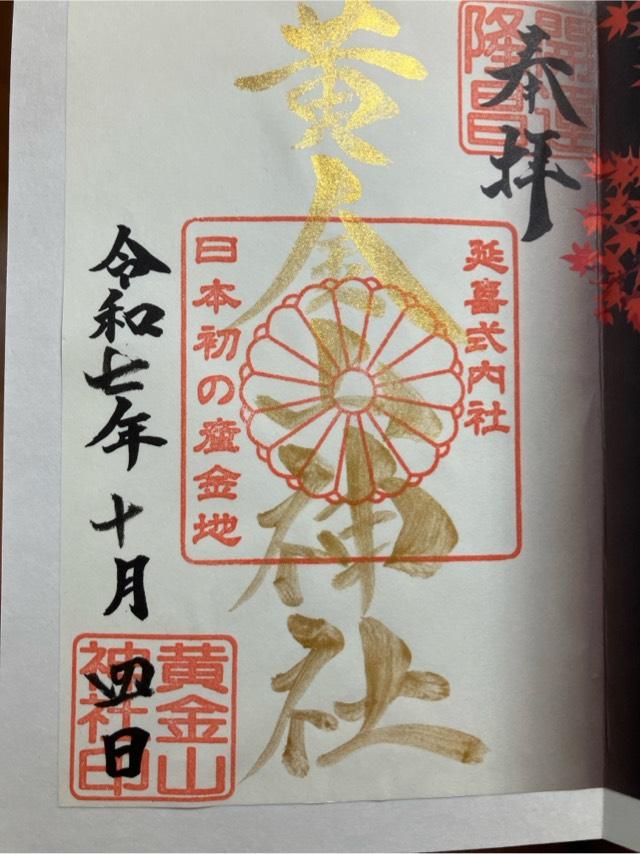 奉拝
開運
隆昌
延喜式内社
黄金山神社
日本初の産金地
令和七年十月四日
黄金山
神社印